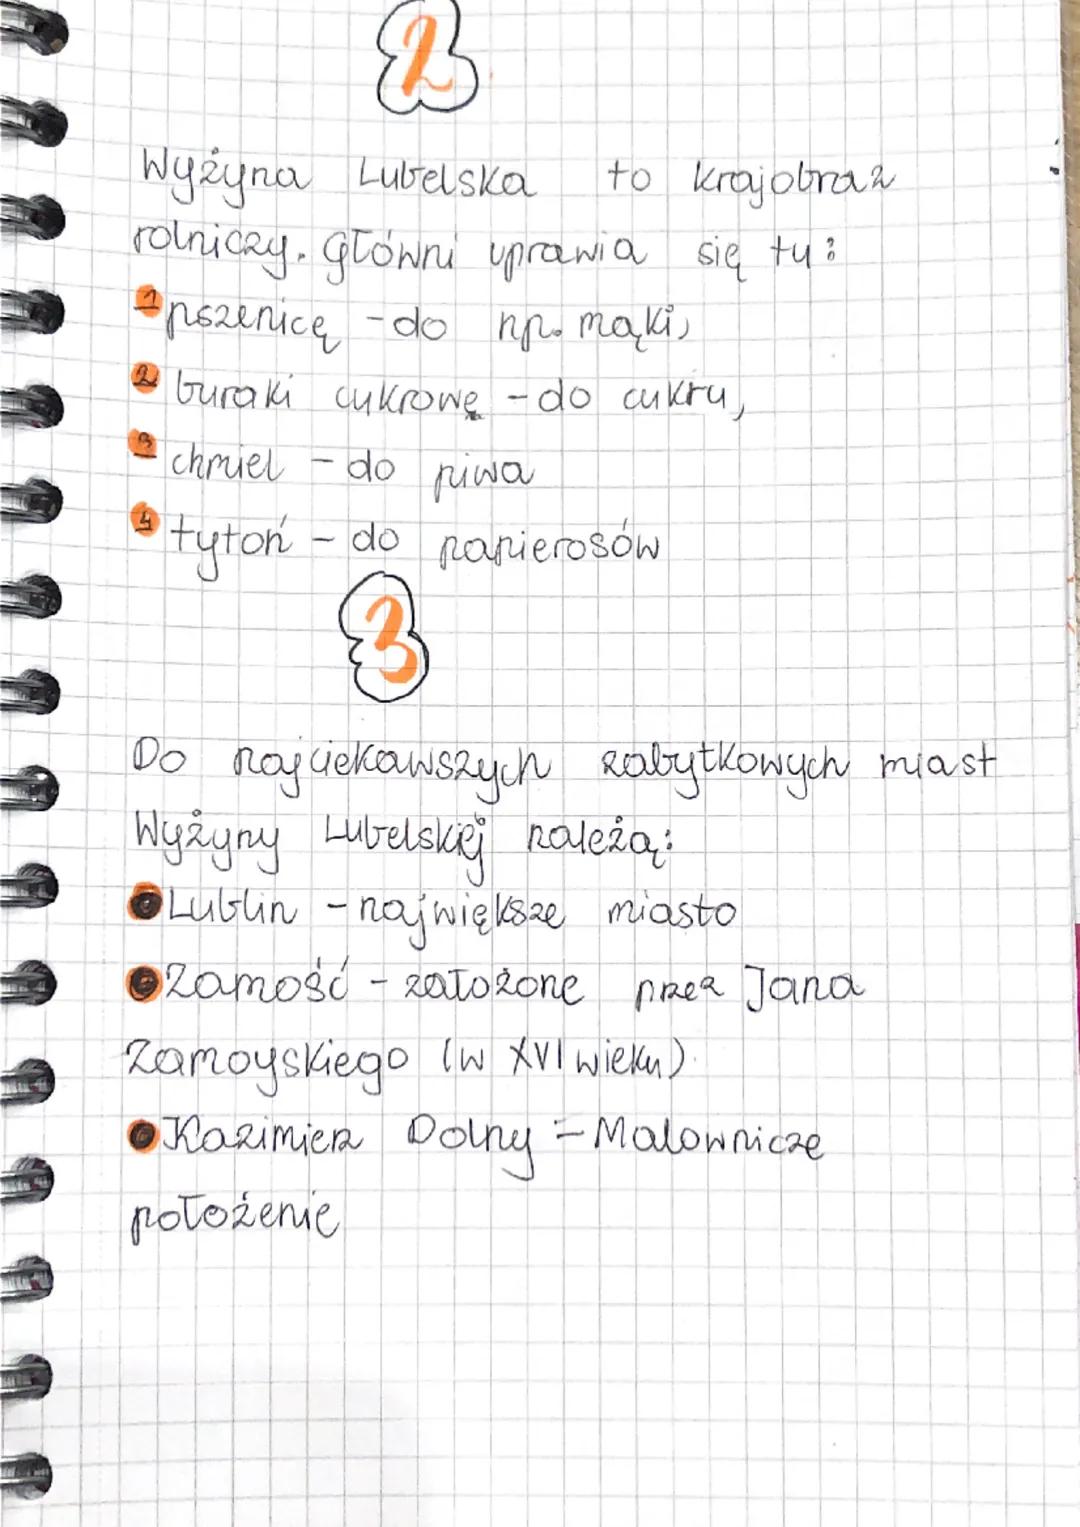 2
Wyżyna Lubelska to krajobraz
rolniczy. Główni uprawia się tu:
1 pszenicę - do np. mąki,
2 buraki cukrowe - do cukru,
3 chmiel - do piwa
4 tytoń - do papierosów
3
Do najciekawszych zabytkowych miast
Wyżyny Lubelskiej należą:
Lublin - największe miasto
Zamość - założone przez Jana
Zamoyskiego (w XVI wieku).
Kazimierz Dolny - Malownicze
położenie